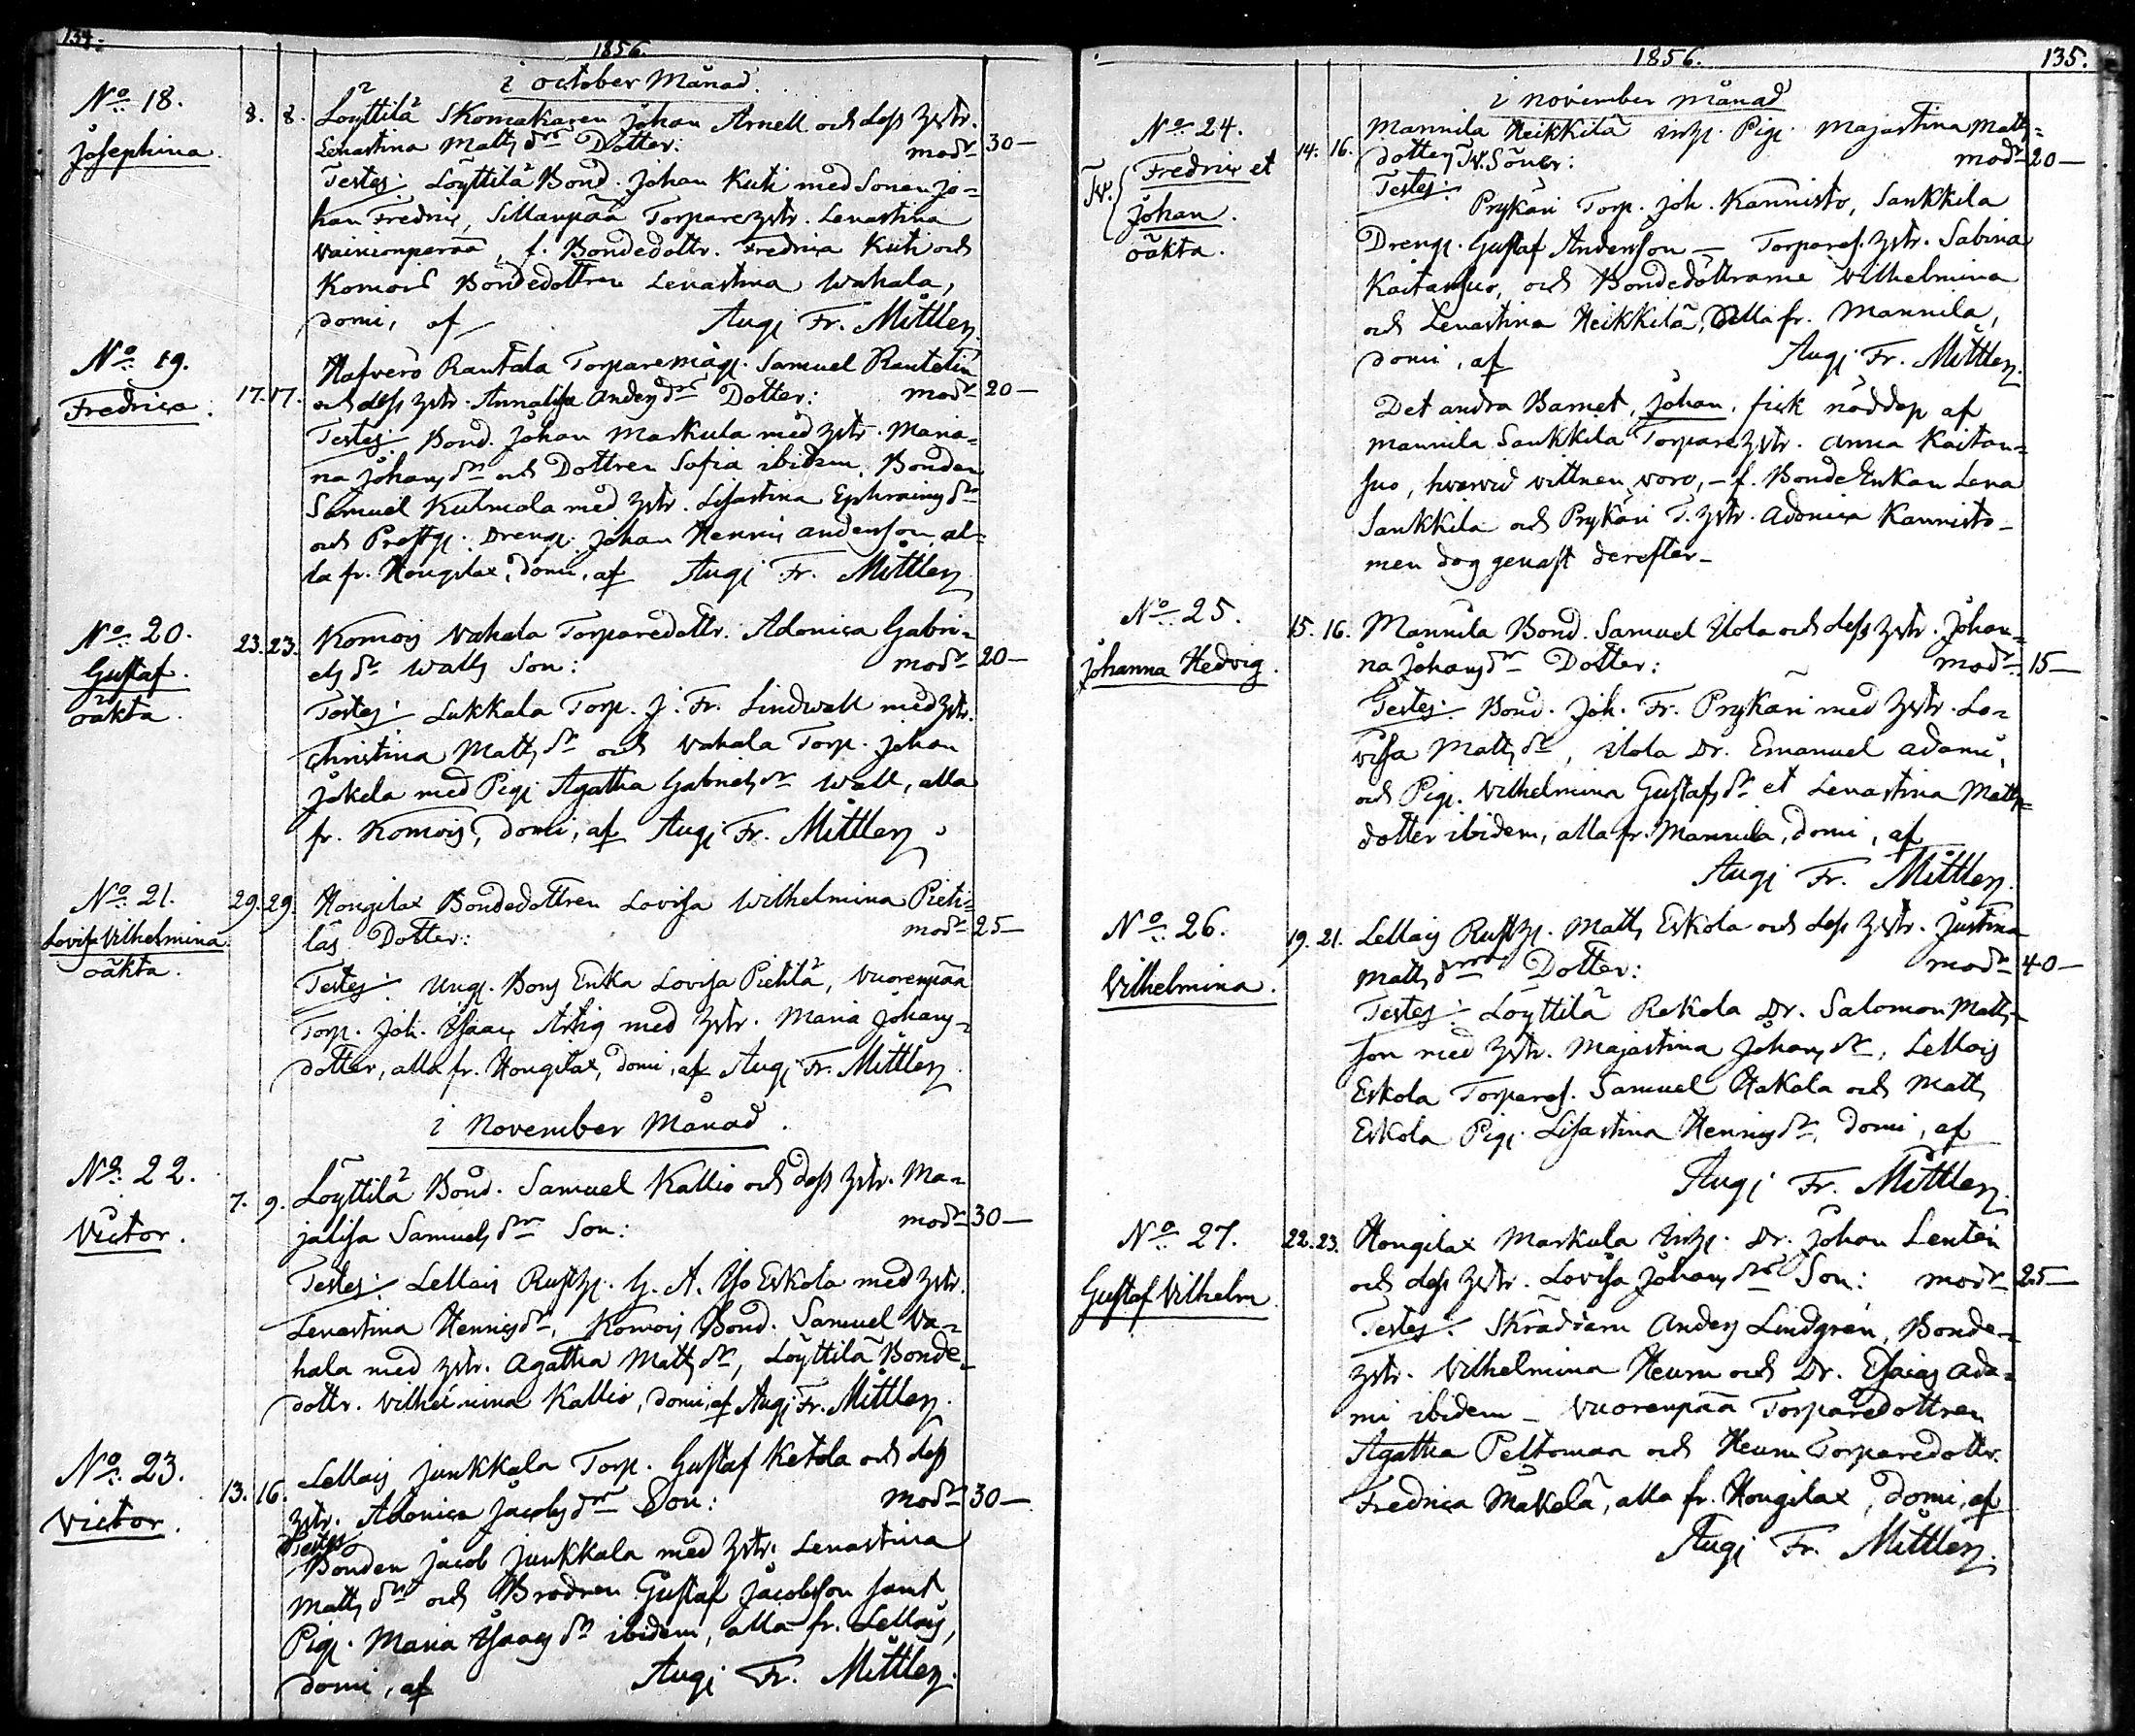 134.
1856.
i October Månad.
No 18.
Josephina.
8. 8. Löyttilä Skomakaren Johan Arnell och dess hstr.
Lenastina Matts dr Dotter: modr 30 —
Testes: Löyttilä Bond. Johan Kuti med Sonen Jo=
han Fredric, Sillanpää Torpare hstr. Lenastina
Vainionperää, f. Bondedottr. Fredrica Kuti och
Komois Bondedottren Lenastina Wahala,
domi, af Augi Fr. Mittler.
No 19.
Fredrica.
17. 17. Hafverö Rantala Torparemåg. Samuel Rantelin
och dess hstr. Annalisa Anders dr Dotter: modr 20 —
Testes: Bond. Johan Markula med hstr. Maria=
na Johans dr och Dottren Sofia ibidem, Bonden
Samuel Kulmala med hstr. Lisastina Ephraims dr
och Prestg. Dreng. Johan Henric Andersson, al=
la fr. Hongilax, domi, af Augi Fr. Mittler.
No 20.
Gustaf.
oäkta.
23. 23. Komois Vahala Torparedottr. Adonica Gabri=
els dr Walls Son: modr 20 —
Testes: Lukkala Torp. J. Fr. Lindwall med hstr.
Christina Matts dr och Vahala Torp. Johan
Jokela med Pig. Agatha Gabriels dr Wall, alla
fr. Komois, domi, af Augi Fr. Mittler.
No 21.
Lovisa Vilhelmina
oäkta.
29. 29. Hongilax Bondedottren Lovisa Wilhelmina Pieti=
läs Dotter: modr 25 —
Testes: Ung. Bons Enka Lovisa Pietilä, Vuorenpää
Torp. Joh. Isaac Artig med hstr. Maria Johans=
dotter, alla fr. Hongilax, domi, af Augi Fr. Mittler.
i November Månad.
No 22.
Victor.
7. 9. Löyttilä Bond. Samuel Kallio och dess hstr. Ma=
jalisa Samuels dr Son: modr 30 —
Testes: Lellais Rusth. G. A. Iso Eskola med hstr.
Lenastina Henrics dr, Komois Bond. Samuel Va=
hala med hstr. Agatha Matts dr, Löyttilä Bonde=
dottr. Vilhelmina Kallio, domi, af Augi Fr. Mittler.
No 23.
Victor.
13. 16. Lellais Junkkala Torp. Gustaf Ketola och dess
hstr. Adonica Jacobs dr Son: modr 30 —
Testes
Bonden Jacob Junkkala med hstr. Lenastina
Matts dr och Brodren Gustaf Jacobsson samt
Pig. Maria Isaacs dr ibidem, alla fr. Lellais,
domi, af Augi Fr. Mittler.
1856. 135.
i November månad
No 24.
Tv. Fredric et
Johan.
oäkta.
14. 16. Mannila Heikkilä inh. Pig. Majastina Matts=
dotters Tv. Söner: modr 20 —
Testes: Prykäri Torp. Joh. Kannisto, Sankkila
Dreng. Gustaf Andersson — Torpares. hstr. Sabina
Kaitansuo, och Bondedöttrarne Vilhelmina
och Lenastina Heikkilä, alla fr. Mannila,
domi, af Augi Fr. Mittler.
Det andra Barnet, Johan, fick nöddop af
Mannila Sankkila Torpare hstr. Anna Kaitan=
suo, hvarvid vittnen voro, — f. Bonde Enkan Lena
Sankkila och Prykäri T. hstr. Adonica Kannisto —
men dog genast derefter —
No 25.
Johanna Hedvig.
15. 16. Mannila Bond. Samuel Ilola och dess hstr. Johan=
na Johans dr Dotter: modr 15 —
Testes: Bond. Joh. Fr. Prykäri med hstr. Lo=
visa Matts dr, Ilola Dr. Emanuel Adami,
och Pig. Vilhelmina Gustafs dr et Lenastina Matts=
dotter ibidem, alla fr. Mannila, domi, af
Augi Fr. Mittler.
No 26.
Vilhelmina.
19. 21. Lellais Rusth. Matts Eskola och dess hstr. Justina
Matts dr Dotter: modr 40 —
Testes: Löyttilä Rekola Dr. Salomon Matts=
son med hstr. Majastina Johans dr, Lellais
Eskola Torpares. Samuel Hakala och Matts
Eskola Pig. Lisastina Henrics dr, domi, af
Augi Fr. Mittler.
No 27.
Gustaf Vilhelm.
22. 23. Hongilax Markula Inh. Dr. Johan Lentén
och dess hstr. Lovisa Johans dr Son: modr 25 —
Testes: Skräddarn Anders Lindgrén, Bonde=
hstr. Vilhelmina Heurn och Dr. Esaias Ada=
mi ibidem — Vuorenpää Torparedottren
Agatha Peltomaa och Heurn Torparedottr.
Fredrica Mäkelä, alla fr. Hongilax, domi, af
Augi Fr. Mittler.